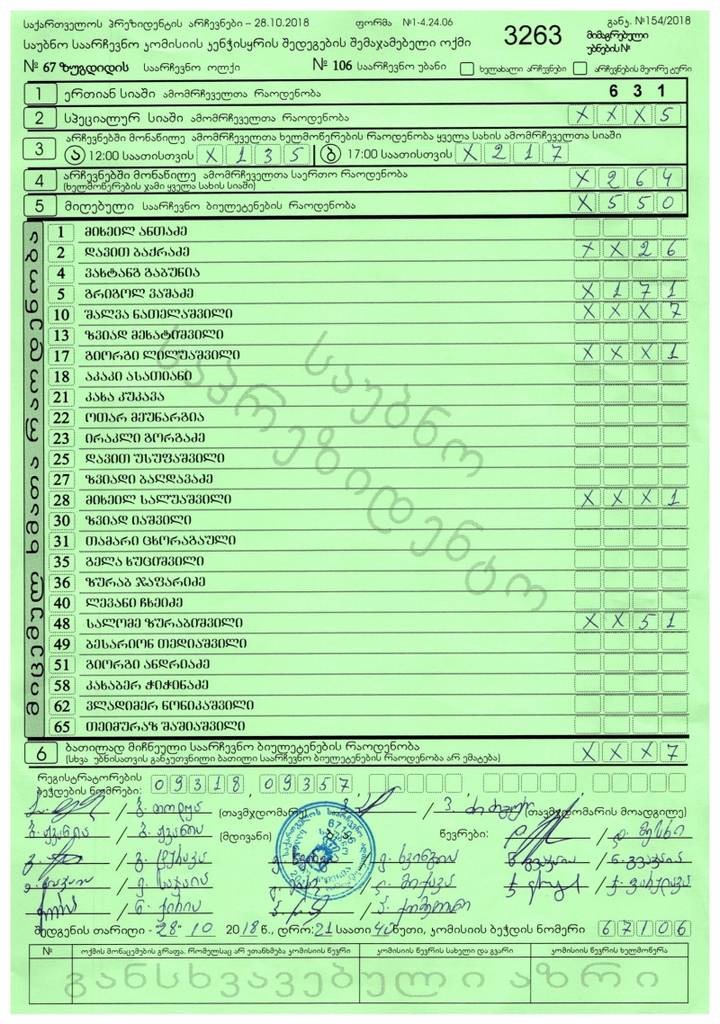 საქართველოს პრეზიდენტის არჩევნები – 28.10.2018 ფორმა №1-4.24.06 განკ. №154/2018
საუბნო საარჩევნო კომისიის კენჭისყრის შედეგების შემაჯამებელი ოქმი 3263 მიმაგრებული უბნების №
№ 67 ზუგდიდის საარჩევნო ოლქი № 106 საარჩევნო უბანი ხელახალი არჩევნები არჩევნების მეორე ტური
1 ერთიან სიაში ამომრჩეველთა რაოდენობა 6 3 1
2 სპეციალურ სიაში ამომრჩეველთა რაოდენობა X X X 5
არჩევნებში მონაწილე ამომრჩეველთა ხელმოწერების რაოდენობა ყველა სახის ამომრჩეველთა სიაში
3 ა 12:00 საათისთვის X 1 3 5 ბ 17:00 საათისთვის X 2 1 7
4 არჩევნებში მონაწილე ამომრჩეველთა საერთო რაოდენობა X 2 6 4
(ხელმოწერების ჯამი ყველა სახის სიაში)
5 მიღებული საარჩევნო ბიულეტენების რაოდენობა X 5 5 0
მიცემულ ხმათა რაოდენობა
1 მიხეილ ანთაძე
2 დავით ბაქრაძე X X 2 6
4 ვახტანგ გაბუნია
5 გრიგოლ ვაშაძე X 1 7 1
10 შალვა ნათელაშვილი X X X 7
13 ზვიად მეხატიშვილი
17 გიორგი ლილუაშვილი X X X 1
18 აკაკი ასათიანი
21 კახა კუკავა
22 ოთარ მეუნარგია
23 ირაკლი გორგაძე
25 დავით უსუფაშვილი
27 ზვიადი ბაღდავაძე
28 მიხეილ სალუაშვილი X X X 1
30 ზვიად იაშვილი
31 თამარი ცხორაგაული
35 გელა ხუციშვილი
36 ზურაბ ჯაფარიძე
40 ლევანი ჩხეიძე
48 სალომე ზურაბიშვილი X X 5 1
49 ბესარიონ თედიაშვილი
51 გიორგი ანდრიაძე
58 კახაბერ ჭიჭინაძე
62 ვლადიმერ ნონიკაშვილი
65 თეიმურაზ შაშიაშვილი
საუბნო
საპრეზიდენტო
6 ბათილად მიჩნეული საარჩევნო ბიულეტენების რაოდენობა X X X 7
(სხვა უბნისათვის განკუთვნილი ბათილი საარჩევნო ბიულეტენების რაოდენობა არ ემატება)
რეგისტრატორების
ბეჭდების ნომრები: 0 9 3 1 8 0 9 3 5 7
(თავმჯდომარე) (თავმჯდომარის მოადგილე)
(მდივანი) წევრები:
შედგენის თარიღი - 28 - 10 2018 წ., დრო: 21 საათი 40 წუთი, კომისიის ბეჭდის ნომერი 6 7 1 0 6
№ ოქმის მონაცემების გრაფა, რომელსაც არ ეთანხმება კომისიის წევრი კომისიის წევრის სახელი და გვარი კომისიის წევრის ხელმოწერა
განსხვავებული აზრი